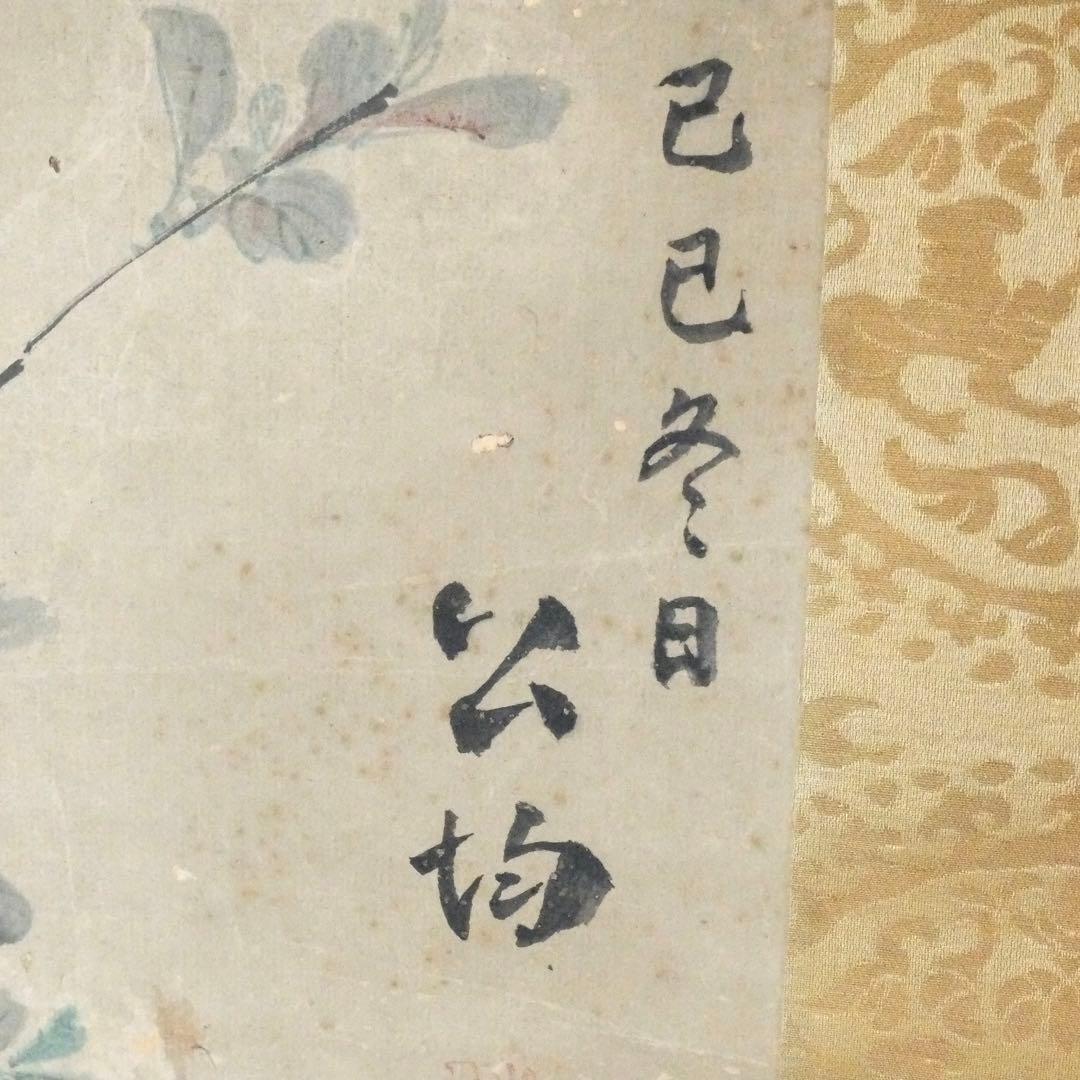 己巳冬日
公均